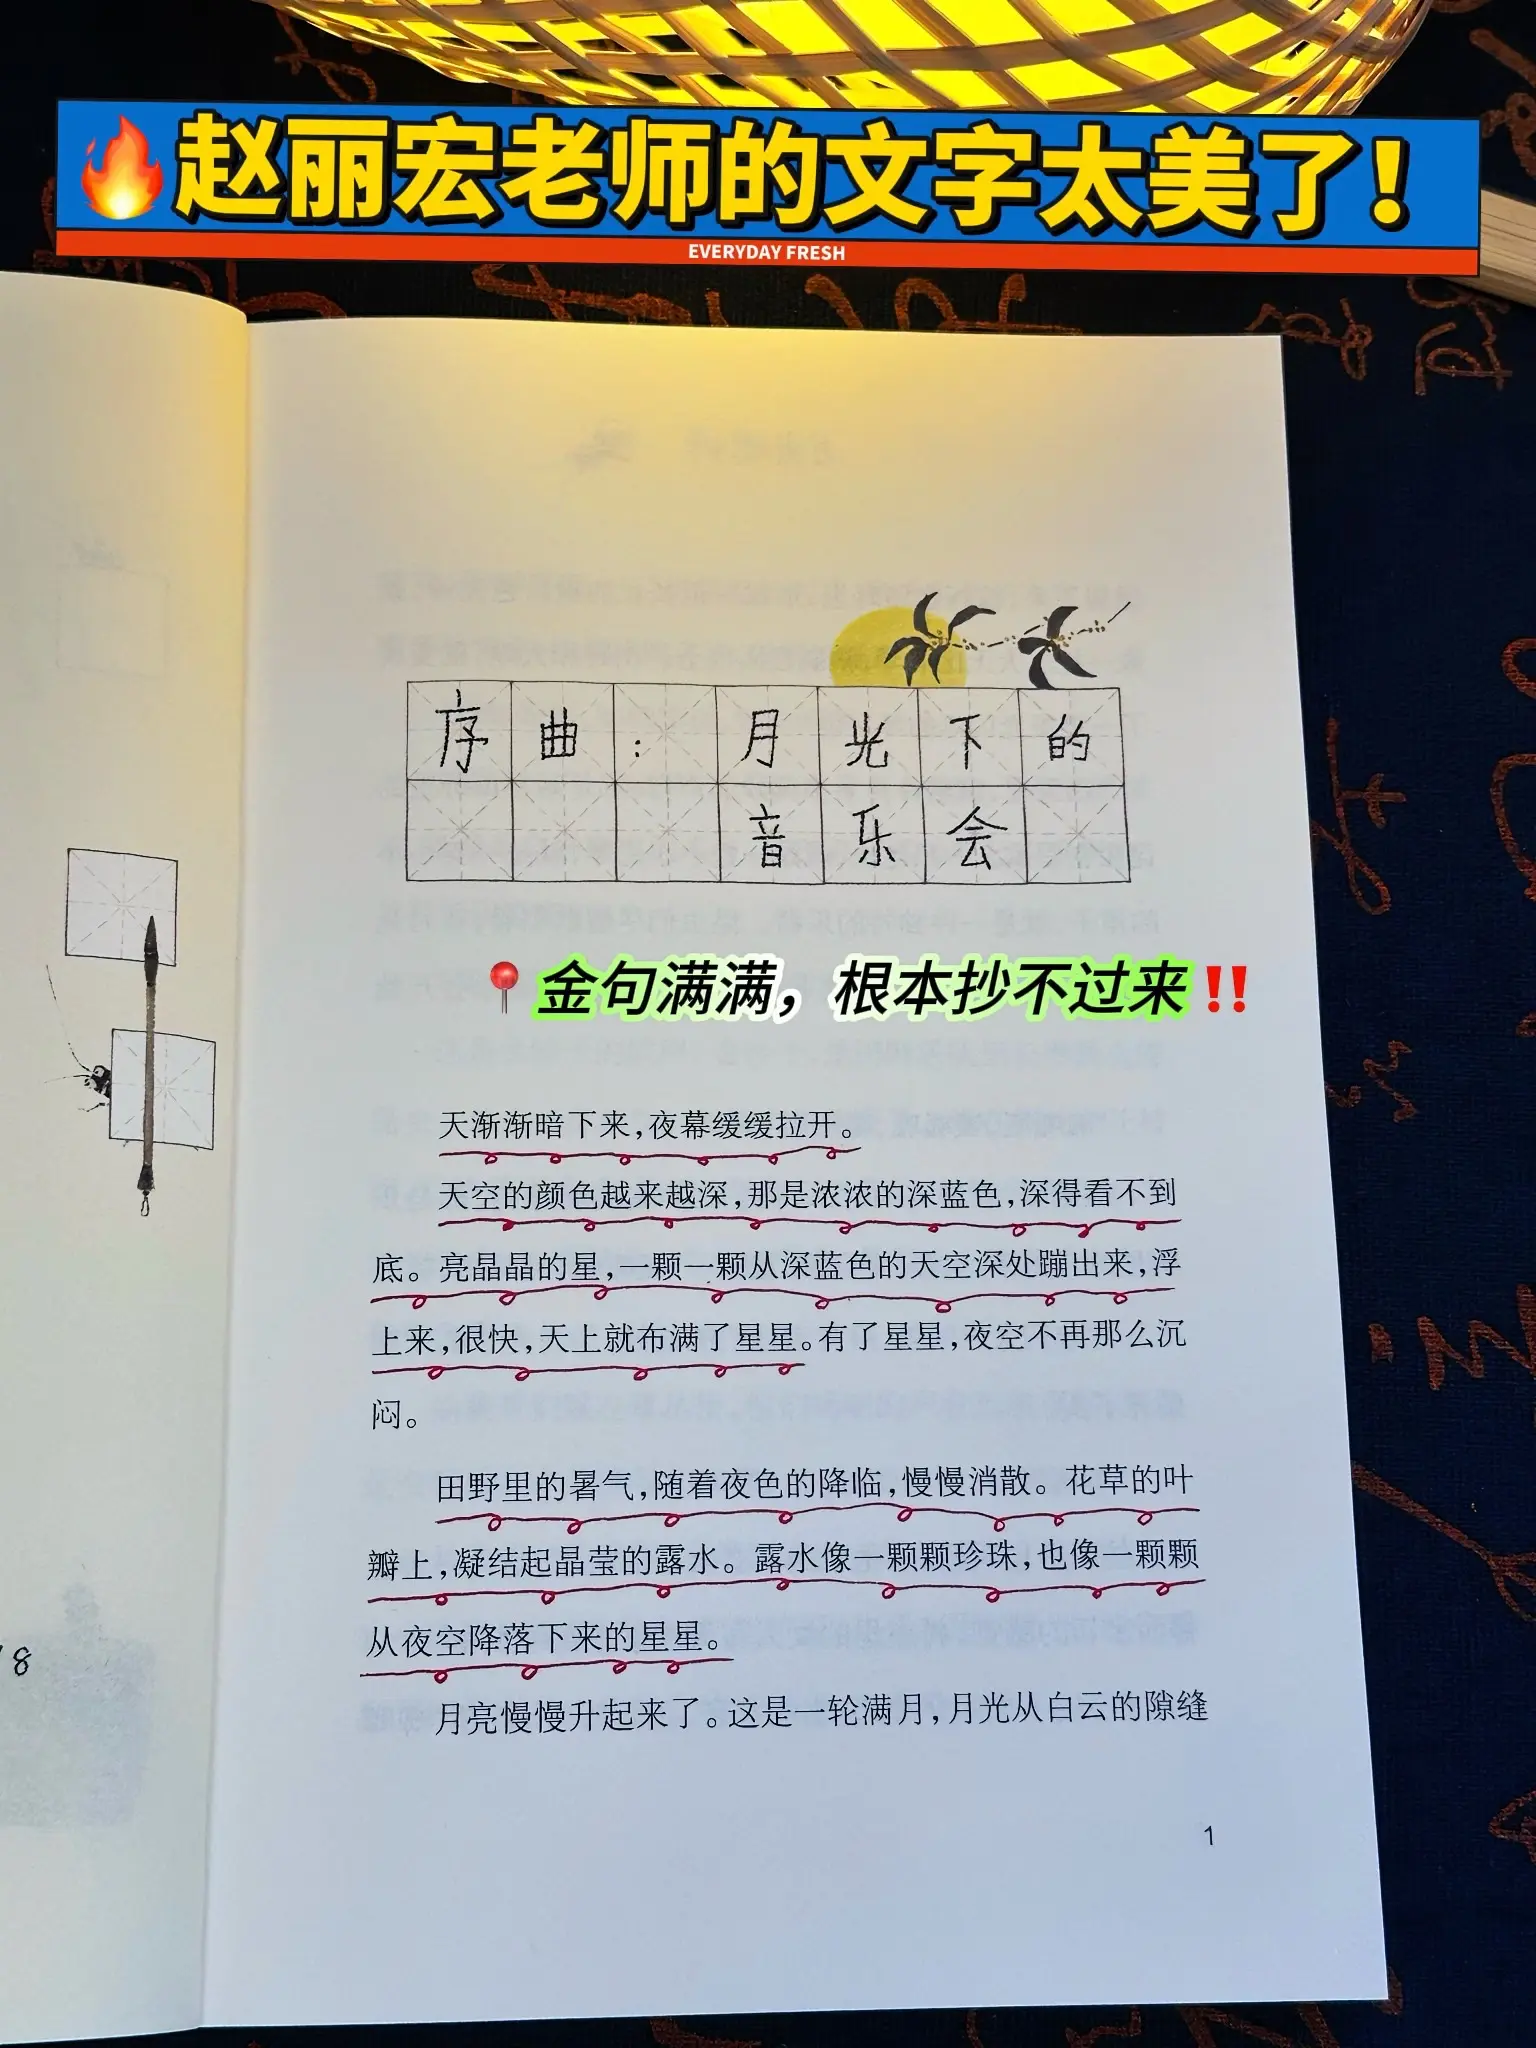 赵丽宏老师的文字太美了！
EVERYDAY FRESH
序曲：月光下的
音乐会
金句满满，根本抄不过来‼️
天渐渐暗下来，夜幕缓缓拉开。
天空的颜色越来越深，那是浓浓的深蓝色，深得看不到
底。亮晶晶的星，一颗一颗从深蓝色的天空深处蹦出来，浮
上来，很快，天上就布满了星星。有了星星，夜空不再那么沉
闷。
田野里的暑气，随着夜色的降临，慢慢消散。花草的叶
瓣上，凝结起晶莹的露水。露水像一颗颗珍珠，也像一颗颗
从夜空降落下来的星星。
月亮慢慢升起来了。这是一轮满月，月光从白云的隙缝
1
8